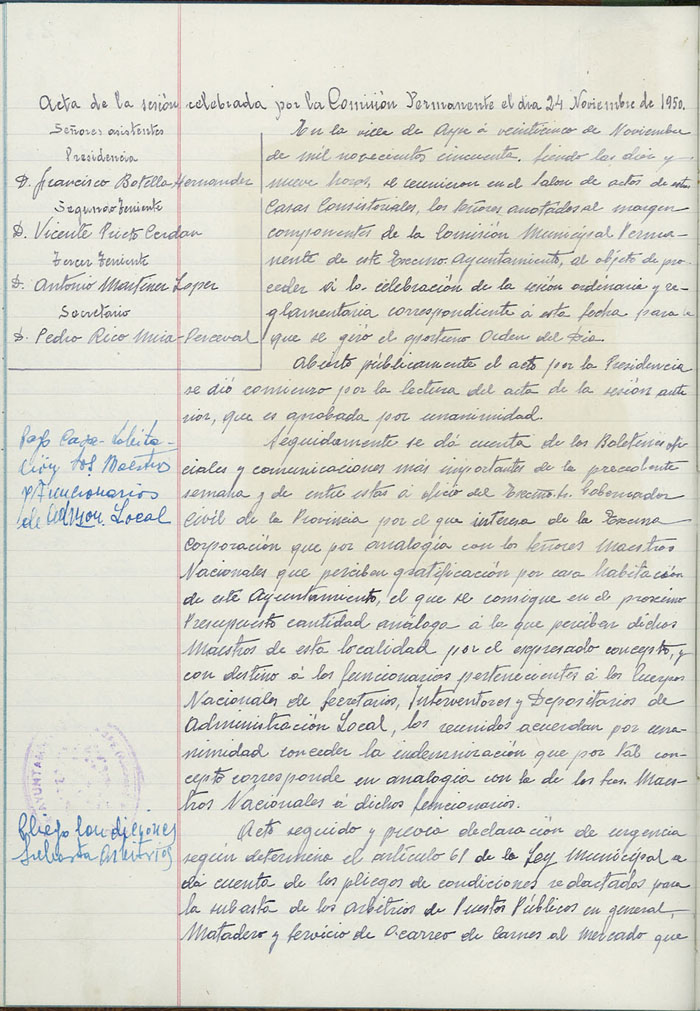 Acta de la sesión celebrada por la Comisión Permanente el dia 24 Noviembre de 1950.
Señores asistentes
Presidencia
D. Francisco Botella Hernander
Segundo Teniente
D. Vicente Prieto Cerdan
Tercer Teniente
D. Antonio Martinez Lopez
Secretario
D. Pedro Rico Perceval
En la villa de Aspe á veinticinco de Noviembre
de mil novecientos cincuenta. Siendo las diez y
nueve horas, se reunieron en el Salon de actos de estas
Casas Consistoriales, los señores anotados al margen
componentes de la Comisión Municipal Perma-
nente de este Excmo. Ayuntamiento, al objeto de pro-
ceder á la celebración de la sesión ordinaria y re-
glamentaria correspondiente á esta fecha para
que se giró el oportuno Orden del Dia.
Abierto públicamente el acto por la Presidencia
se dió comienzo por la lectura del acta de la sesión ante-
rior, que es aprobada por unanimidad.
Pago Casa-habita-
ción Maestros
y Funcionarios
de Admon. Local
Seguidamente se dá cuenta de los Boletines ofi-
ciales y comunicaciones más importantes de la precedente
semana y de entre estas á oficio del Excmo. Sr. Gobernador
Civil de la Provincia por el que interesa de la Excma
Corporación que por analogía con los señores Maestros
Nacionales que perciben gratificación por casa habitación
de este Ayuntamiento, el que se consigne en el proximo
Presupuesto cantidad análoga á la que perciben dichos
Maestros de esta localidad por el expresado concepto, y
con destino á los funcionarios pertenecientes á los Cuerpos
Nacionales de Secretarios, Interventores y Depositarios de
Administración Local, los reunidos acuerdan por una-
nimidad conceder la indemnización que por tal con-
cepto corresponde en analogía con la de los Sres. Maes-
tros Nacionales á dichos funcionarios.
AYUNTAM
Pliego condiciones
Subasta Arbitrios
Acto seguido y previa declaración de urgencia
según determina el artículo 61 de la Ley Municipal se
dá cuenta de los pliegos de condiciones redactados para
la subasta de los arbitrios de Puestos Públicos en general,
Matadero y Servicio de Acarreo de Carnes al mercado que